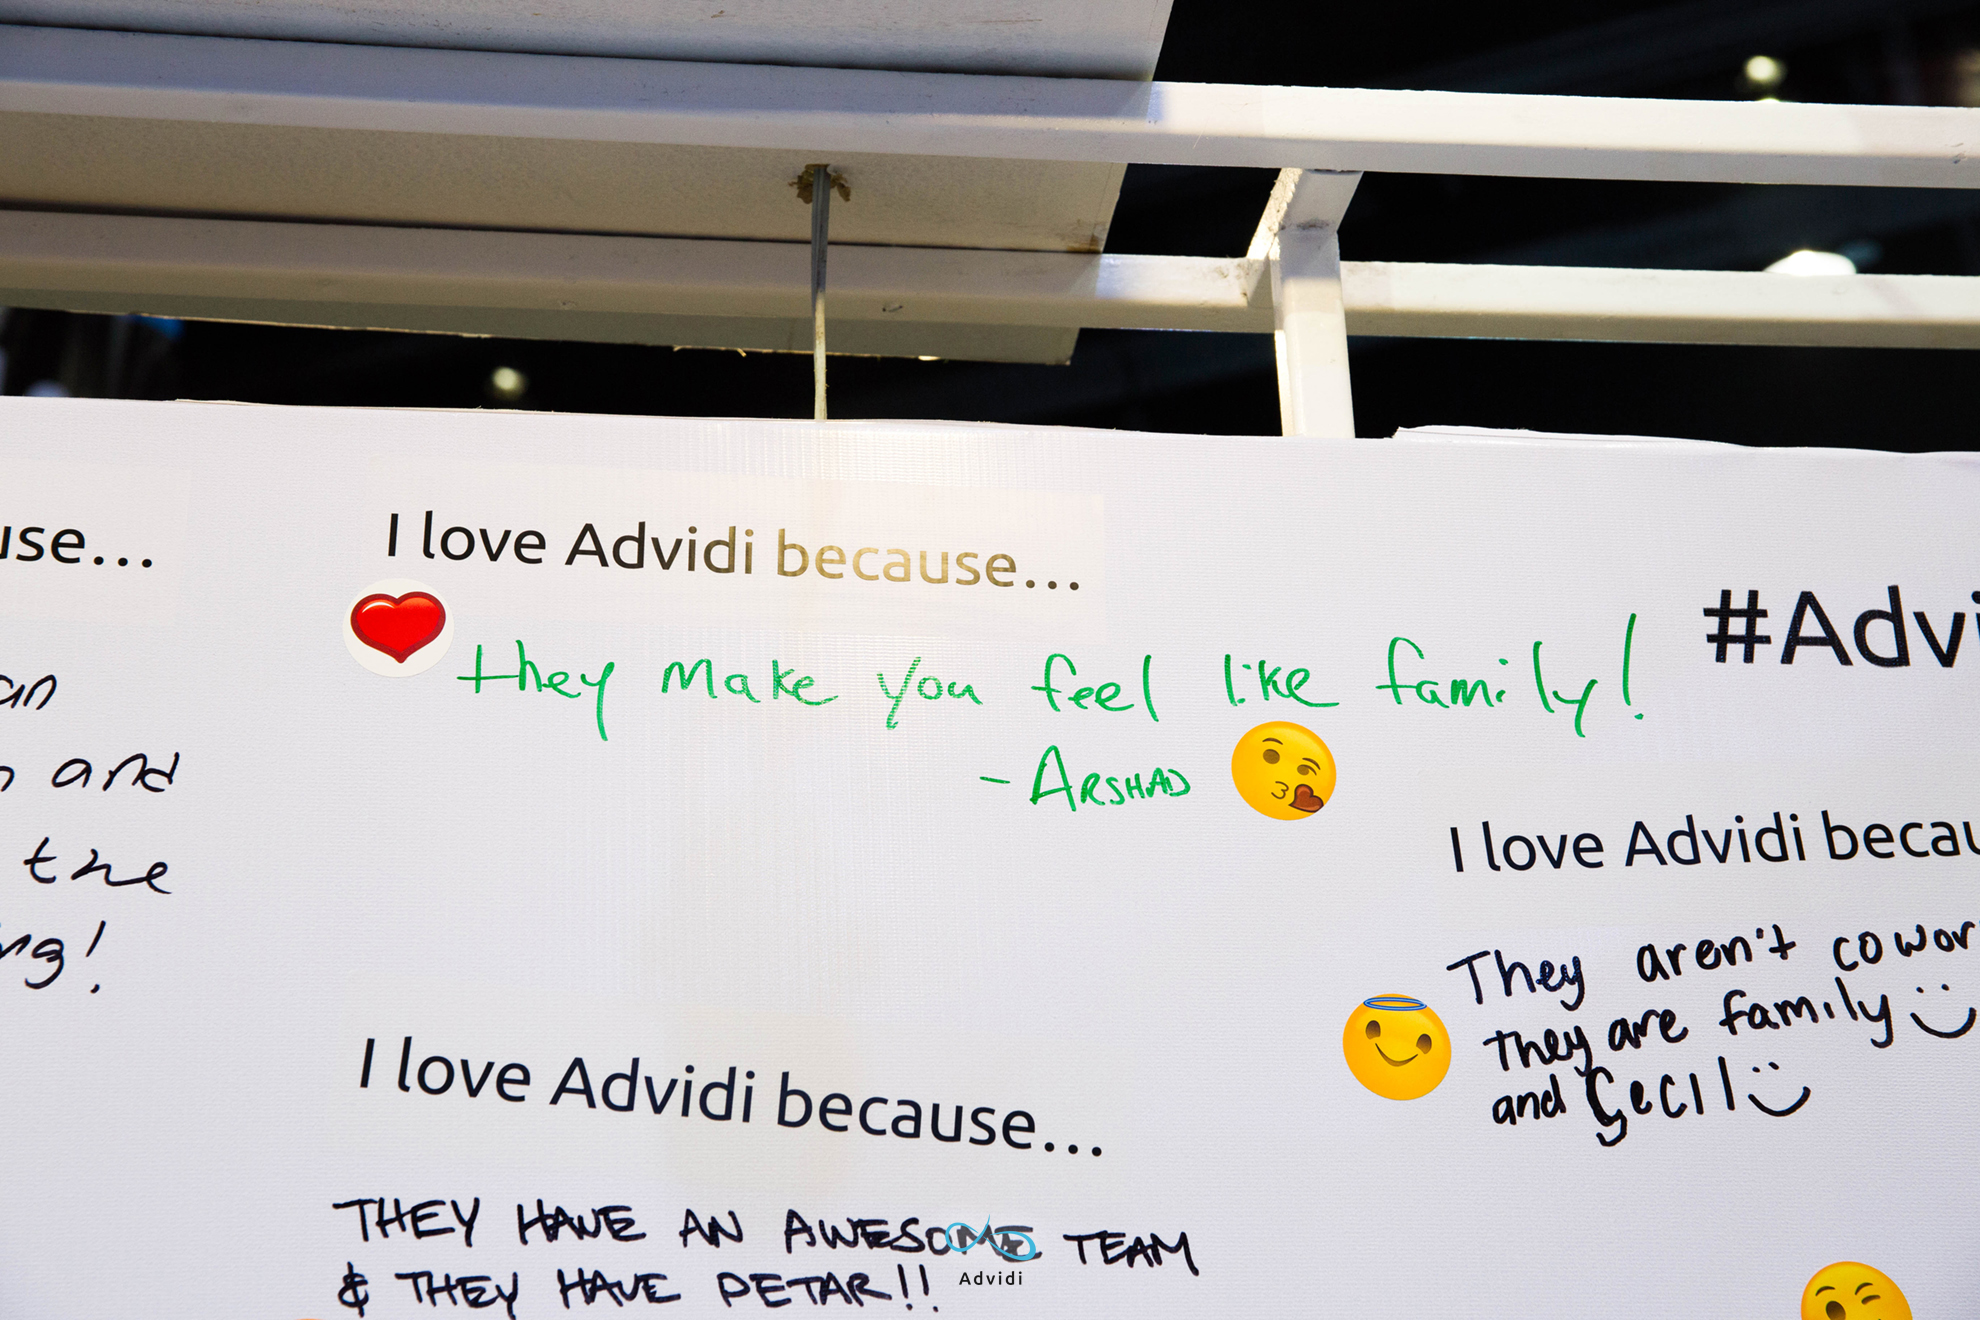 I love Advidi because...
they make you feel like family!
- ARSHAD
#Adv
I love Advidi
They aren't
they are family
and Cecil
an
and
the
I love Advidi because...
THEY HAVE AN AWESOME TEAM
& THEY HAVE PETAR!!
Advidi